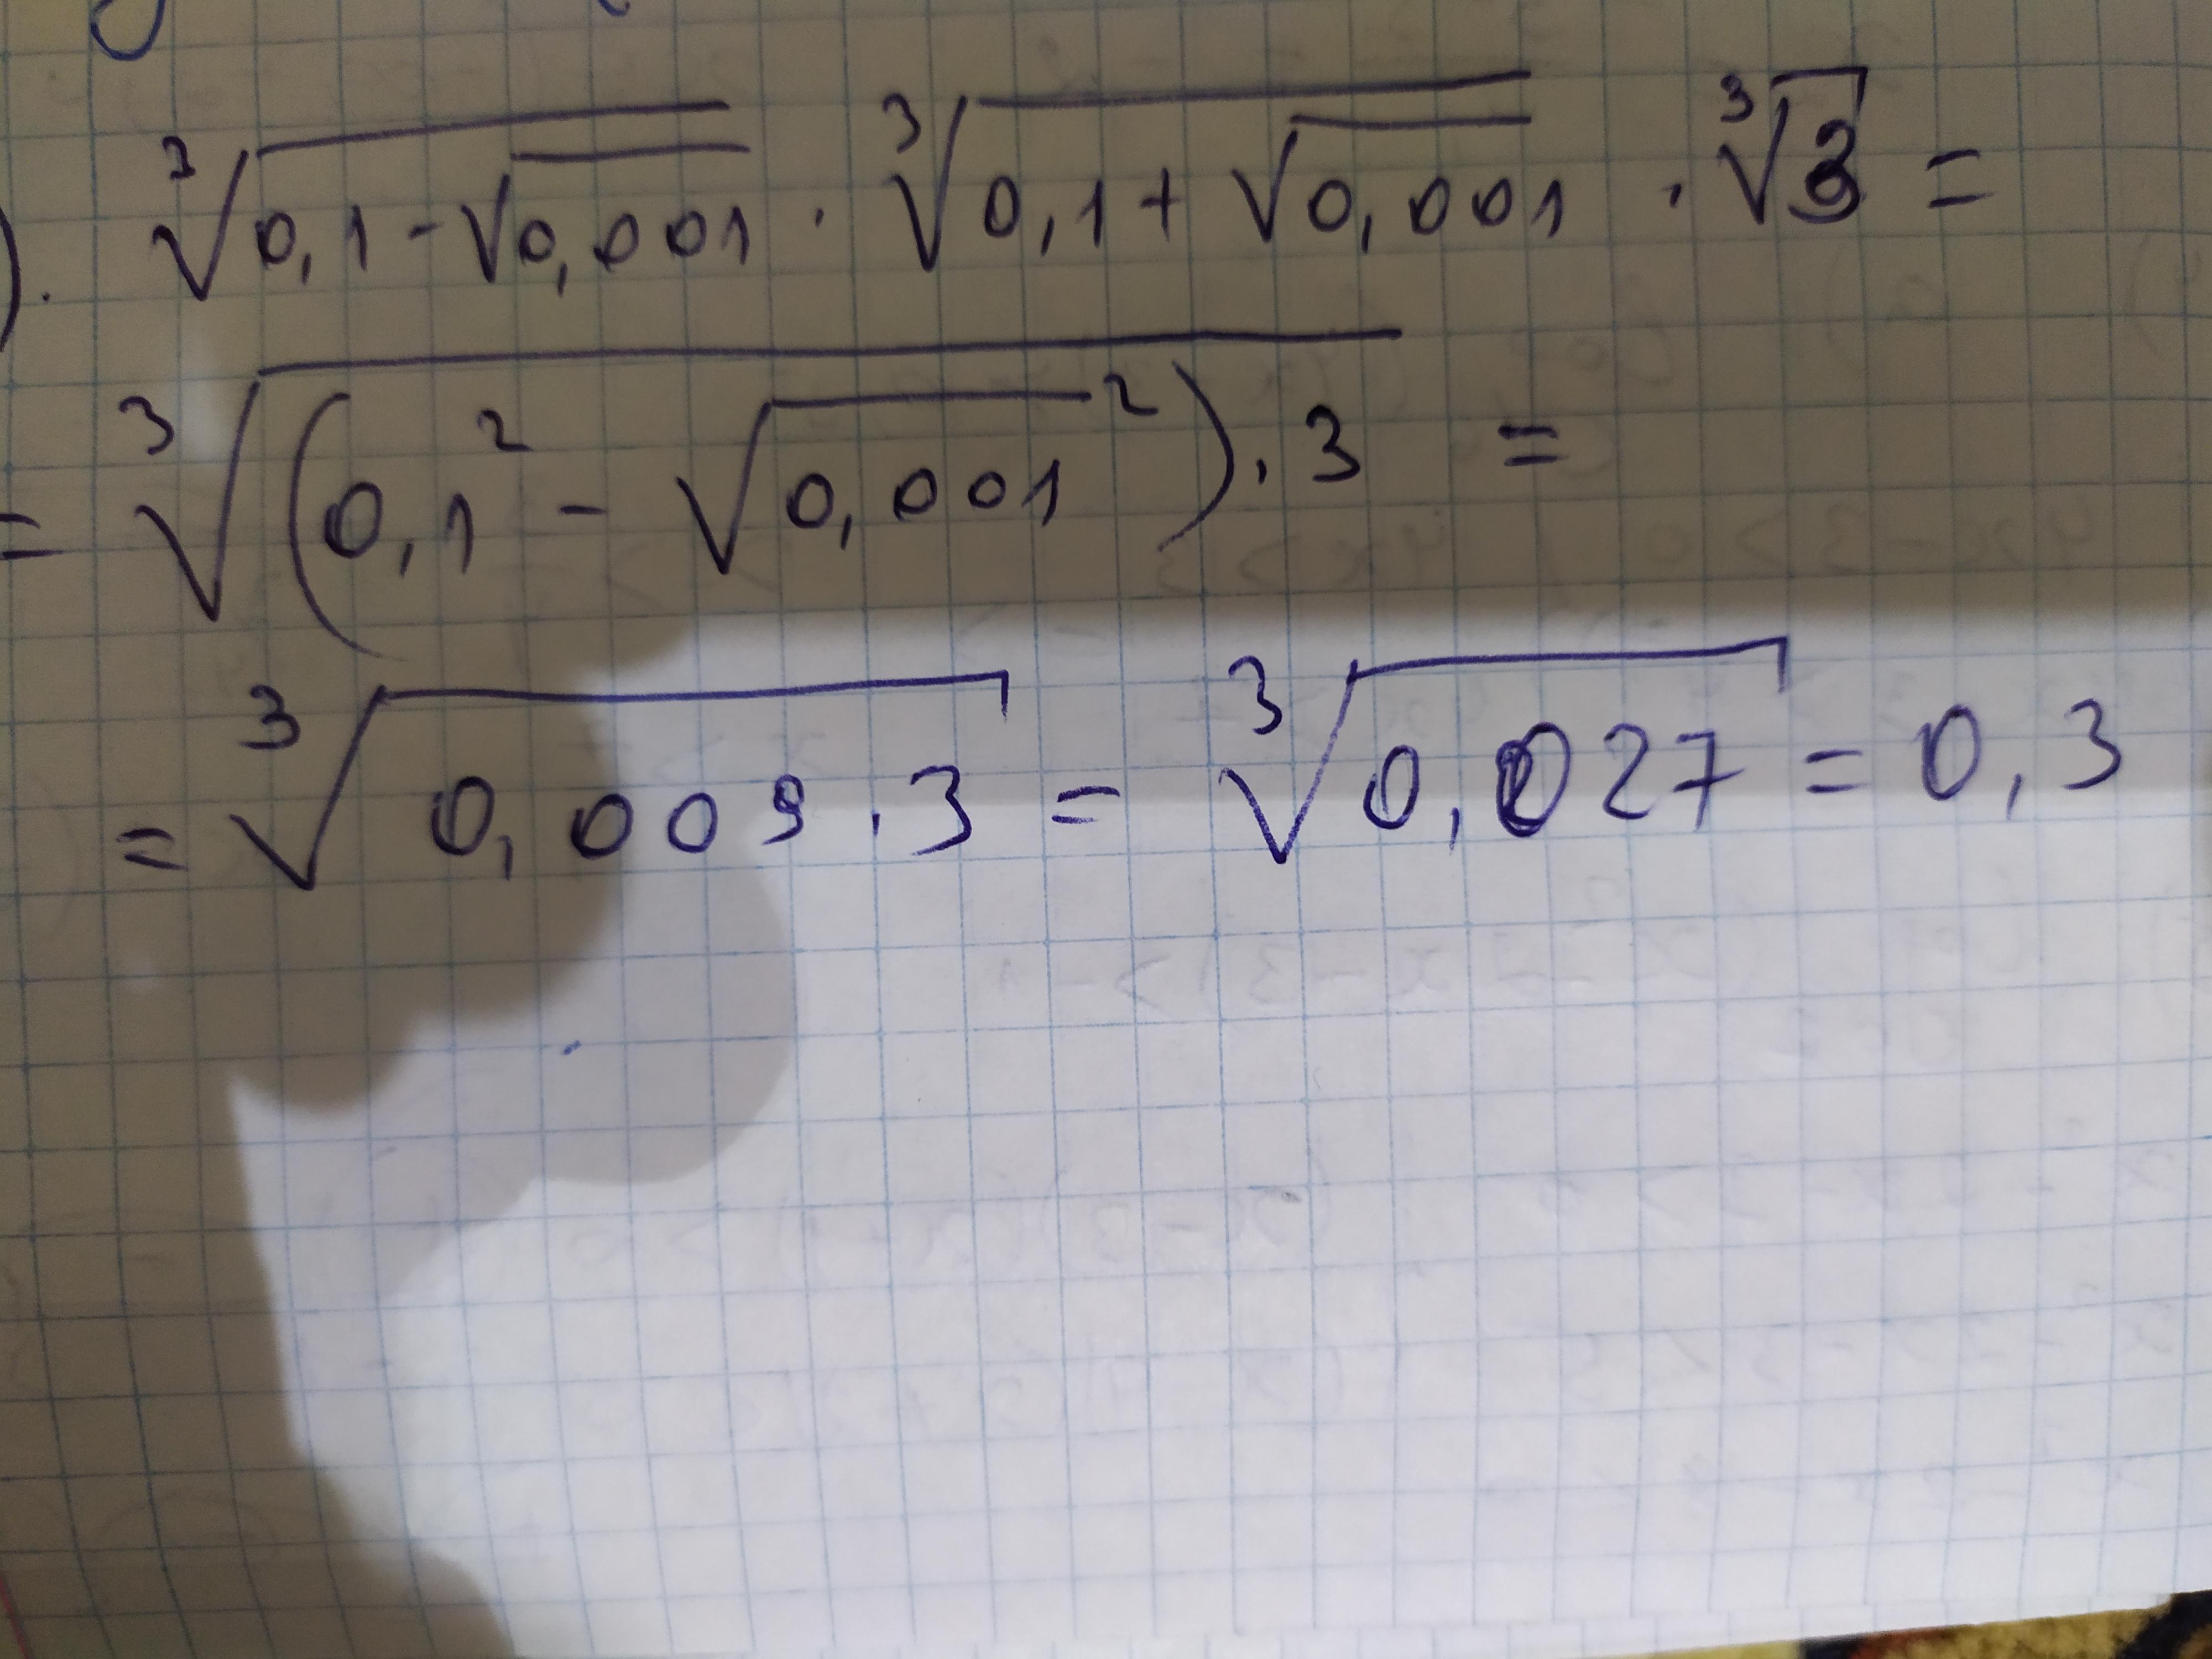 ). ³√(0,1-√0,001) · ³√(0,1+√0,001) · ³√3 =
= ³√((0,1² - √0,001²) · 3) =
= ³√(0,009 · 3) = ³√0,027 = 0,3